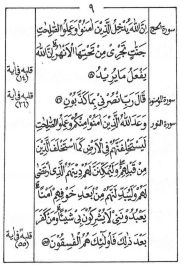 ٩
سورة الحج
إِنَّ اللَّهَ يُدْخِلُ الَّذِينَ آمَنُوا وَعَمِلُوا الصَّالِحَاتِ
جَنَّاتٍ تَجْرِي مِنْ تَحْتِهَا الْأَنْهَارُ إِنَّ اللَّهَ
يَفْعَلُ مَا يُرِيدُ
قلبه في آية (١٤)
سورة المؤمنون
قَالَ رَبِّ انْصُرْنِي بِمَا كَذَّبُونِ
قلبه في آية (٢٦)
سورة النور
وَعَدَ اللَّهُ الَّذِينَ آمَنُوا مِنْكُمْ وَعَمِلُوا الصَّالِحَاتِ
لَيَسْتَخْلِفَنَّهُمْ فِي الْأَرْضِ كَمَا اسْتَخْلَفَ الَّذِينَ
مِنْ قَبْلِهِمْ وَلَيُمَكِّنَنَّ لَهُمْ دِينَهُمُ الَّذِي ارْتَضَى
لَهُمْ وَلَيُبَدِّلَنَّهُمْ مِنْ بَعْدِ خَوْفِهِمْ أَمْنًا
يَعْبُدُونَنِي لَا يُشْرِكُونَ بِي شَيْئًا وَمَنْ كَفَرَ
بَعْدَ ذَلِكَ فَأُولَئِكَ هُمُ الْفَاسِقُونَ
قلبه في آية (٥٥)